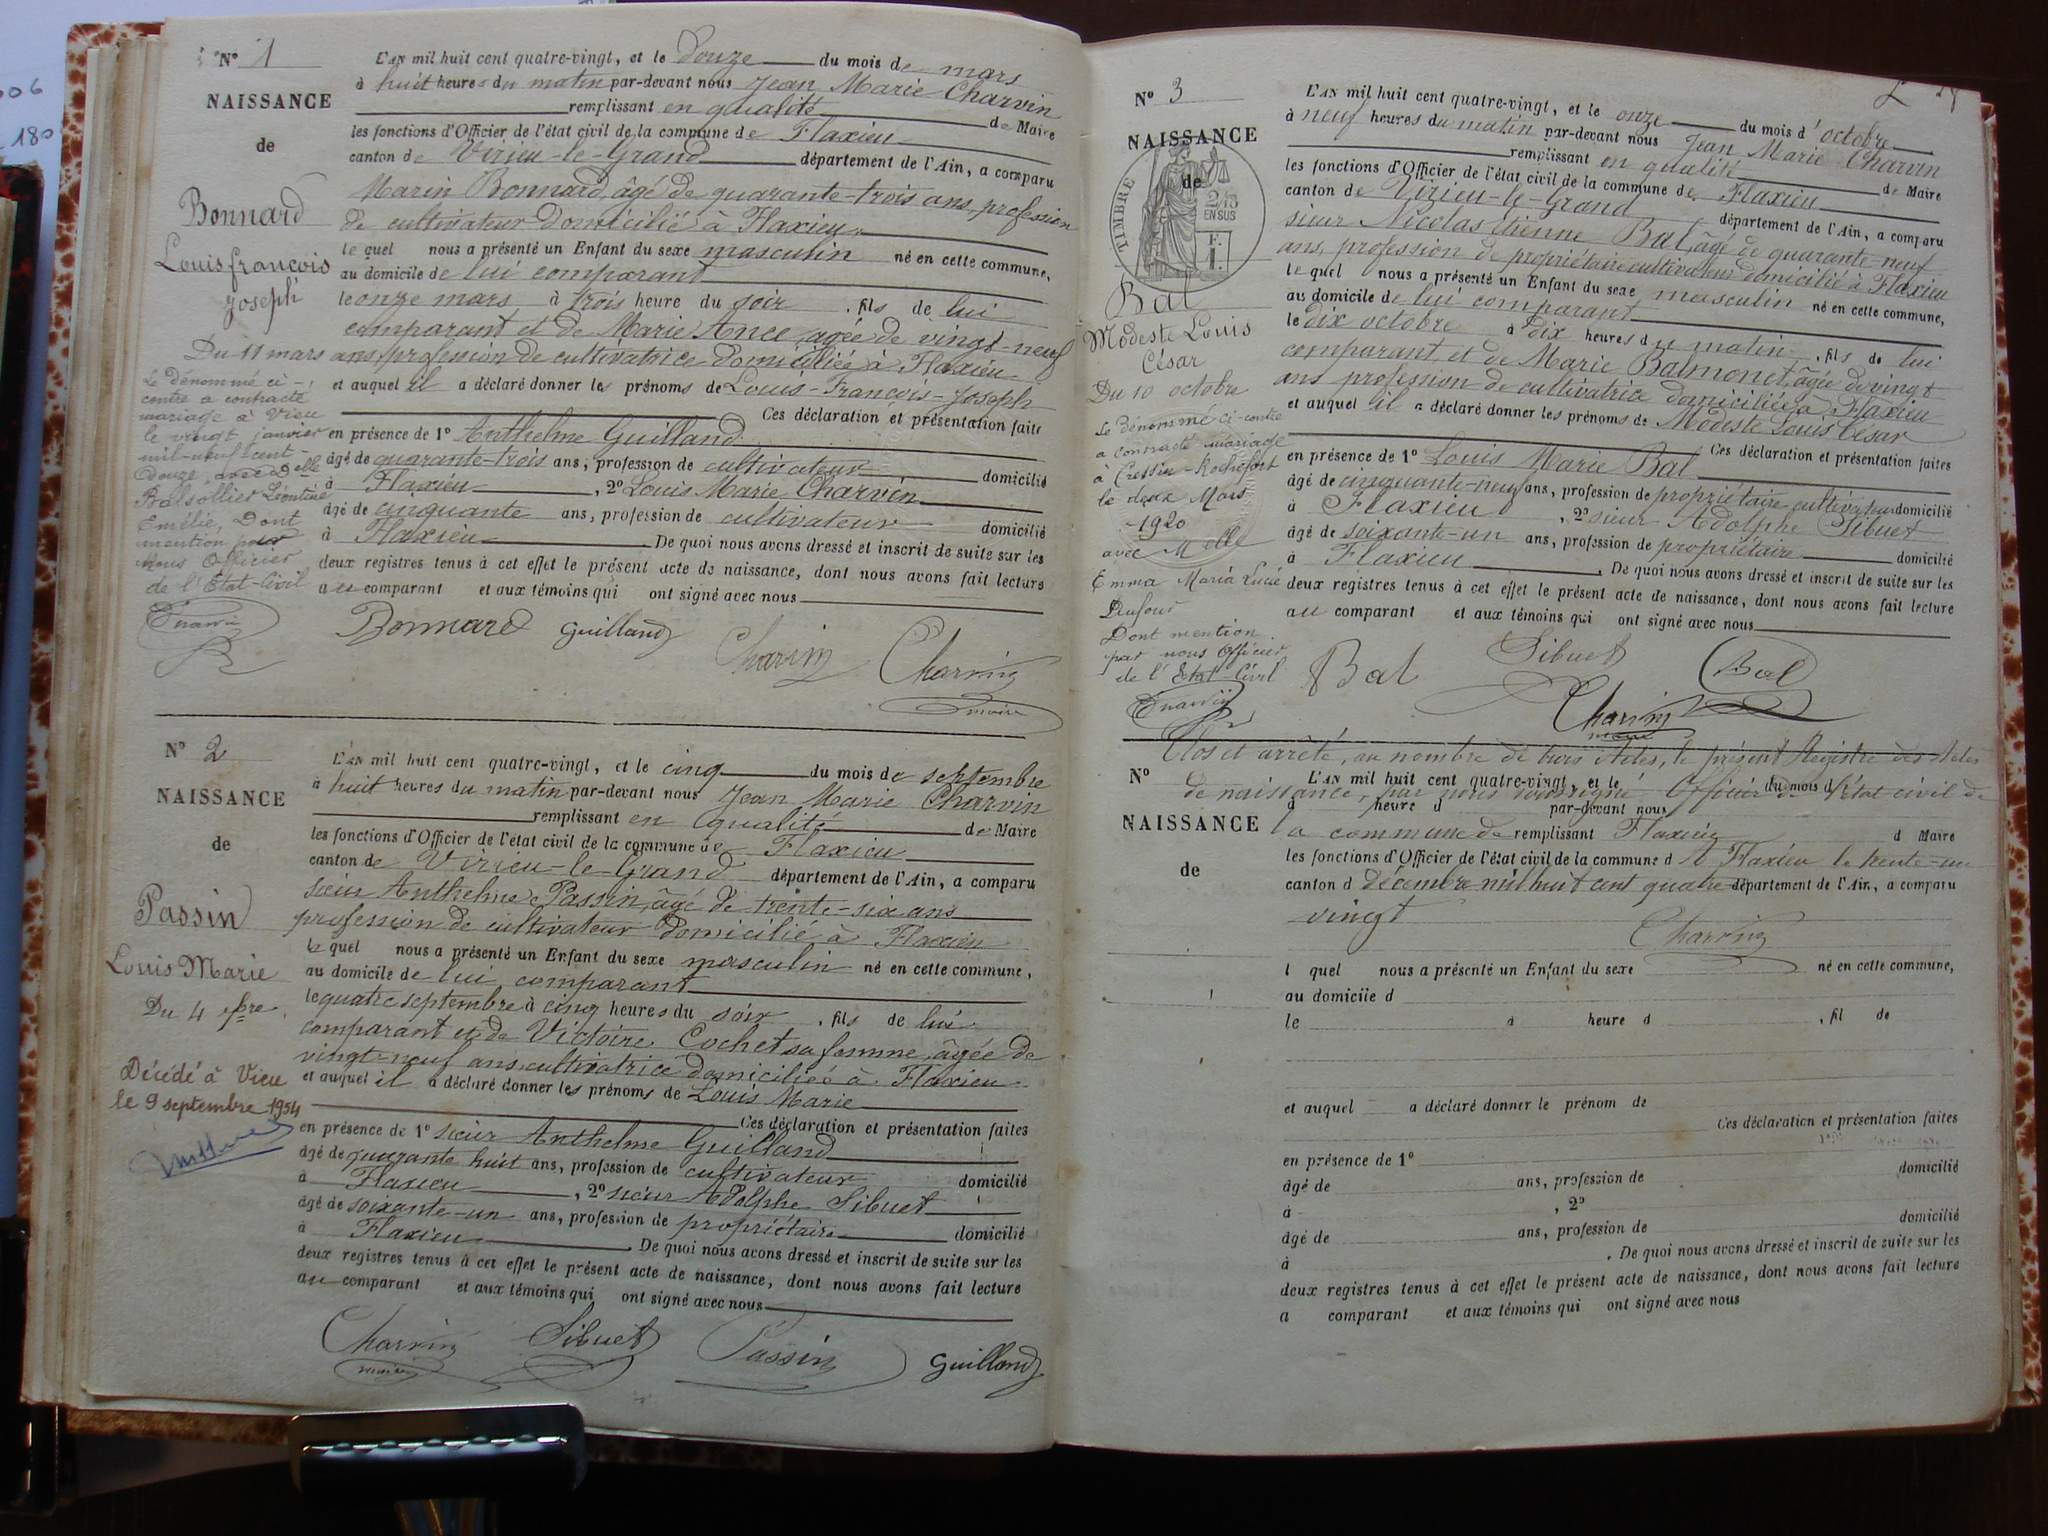 006
180
N° 1
NAISSANCE
de
Bonnard
Louis françois
Joseph
Du 11 mars
Le dénommé ci-
contre a contracté
mariage à Vieu
le vingt janvier
mil-neuf cent-
douze, avec delle
Balsollier Léontine
Emélie, Dont
mention par
nous Officier
de l'Etat-Civil
L'AN mil huit cent quatre-vingt, et le Douze du mois de mars
à huit heures du matin par-devant nous Jean Marie Charvin
remplissant en qualité de Maire
les fonctions d'Officier de l'état civil de la commune de Flaxieu
canton de Virieu-le-Grand département de l'Ain, a comparu
Marin Bonnard, âgé de quarante-trois ans, profession
de cultivateur domicilié à Flaxieu
le quel nous a présenté un Enfant du sexe masculin né en cette commune,
au domicile de lui comparant
le onze mars à trois heure du soir, fils de lui
comparant et de Marie Ance, agée de vingt-neuf
ans, profession de cultivatrice domiciliée à Flaxieu
et auquel il a déclaré donner les prénoms de Louis-François-Joseph
Ces déclaration et présentation faite
en présence de 1° Anthelme Guilland
âgé de quarante-trois ans, profession de cultivateur domicilié
à Flaxieu, 2° Louis Marie Charvin
âgé de cinquante ans, profession de cultivateur domicilié
à Flaxieu De quoi nous avons dressé et inscrit de suite sur les
deux registres tenus à cet effet le présent acte de naissance, dont nous avons fait lecture
au comparant et aux témoins qui ont signé avec nous
Bonnard Guilland Charvin Charvin
maire
N° 2
NAISSANCE
de
Passin
Louis Marie
Du 4 7bre
Décédé à Vieu
le 9 septembre 1954
L'AN mil huit cent quatre-vingt, et le cinq du mois de septembre
à huit heures du matin par-devant nous Jean Marie Charvin
remplissant en qualité de Maire
les fonctions d'Officier de l'état civil de la commune de Flaxieu
canton de Virieu-le-Grand département de l'Ain, a comparu
sieur Anthelme Passin, âgé de trente-six ans
profession de cultivateur domicilié à Flaxieu
le quel nous a présenté un Enfant du sexe masculin né en cette commune,
au domicile de lui comparant
le quatre septembre à cinq heures du soir, fils de lui
comparant et de Victoire Cochet sa femme, âgée de
vingt-neuf ans, cultivatrice domiciliée à Flaxieu
et auquel il a déclaré donner les prénoms de Louis Marie
Ces déclaration et présentation faites
en présence de 1° sieur Anthelme Guilland
âgé de quarante huit ans, profession de cultivateur domicilié
à Flaxieu, 2° sieur Adolphe Sibuet
âgé de soixante-un ans, profession de propriétaire domicilié
à Flaxieu. De quoi nous avons dressé et inscrit de suite sur les
deux registres tenus à cet effet le présent acte de naissance, dont nous avons fait lecture
au comparant et aux témoins qui ont signé avec nous
Charvin Sibuet Passin Guilland
maire
N° 3
NAISSANCE
de
TIMBRE
2/10
EN SUS
F.
1.
Bal
Modeste Louis
César
Du 10 octobre
Le dénommé ci-contre
a contracté mariage
à Cressin-Rochefort
le deux Mars
1920
avec Melle
Emma Maria Lucie
Dufour
Dont mention
par nous Officier
de l'Etat-Civil
L'AN mil huit cent quatre-vingt, et le onze du mois d'octobre
à neuf heures du matin par-devant nous Jean Marie Charvin
remplissant en qualité de Maire
les fonctions d'Officier de l'état civil de la commune de Flaxieu
canton de Virieu-le-Grand département de l'Ain, a comparu
sieur Nicolas Etienne Bal, âgé de quarante-neuf
ans, profession de propriétaire cultivateur domicilié à Flaxieu
le quel nous a présenté un Enfant du sexe masculin né en cette commune,
au domicile de lui comparant
le dix octobre à dix heures du matin, fils de lui
comparant et de Marie Balmonet, âgée de vingt
ans profession de cultivatrice domiciliée à Flaxieu
et auquel il a déclaré donner les prénoms de Modeste Louis César
Ces déclaration et présentation faites
en présence de 1° Louis Marie Bal
âgé de cinquante-neuf ans, profession de propriétaire cultivateur domicilié
à Flaxieu, 2° sieur Adolphe Sibuet
âgé de soixante-un ans, profession de propriétaire domicilié
à Flaxieu. De quoi nous avons dressé et inscrit de suite sur les
deux registres tenus à cet effet le présent acte de naissance, dont nous avons fait lecture
au comparant et aux témoins qui ont signé avec nous
Bal Sibuet Bal
Charvin
maire
Clos et arrêté, au nombre de trois Actes, le présent Registre des Actes
de naissance, par nous soussigné Officier de l'état civil de
la commune de Flaxieu
A Flaxieu le trente-un
Décembre mil huit cent quatre
vingt
Charvin
N°
NAISSANCE
de
L'AN mil huit cent quatre-vingt, et le du mois d
à heure d par-devant nous
remplissant d Maire
les fonctions d'Officier de l'état civil de la commune d
canton d département de l'Ain, a comparu
l quel nous a présenté un Enfant du sexe né en cette commune,
au domicile d
le à heure d, fil de
et auquel a déclaré donner le prénom de
Ces déclaration et présentation faites
en présence de 1°
âgé de ans, profession de domicilié
à, 2°
âgé de ans, profession de domicilié
à. De quoi nous avons dressé et inscrit de suite sur les
deux registres tenus à cet effet le présent acte de naissance, dont nous avons fait lecture
a comparant et aux témoins qui ont signé avec nous